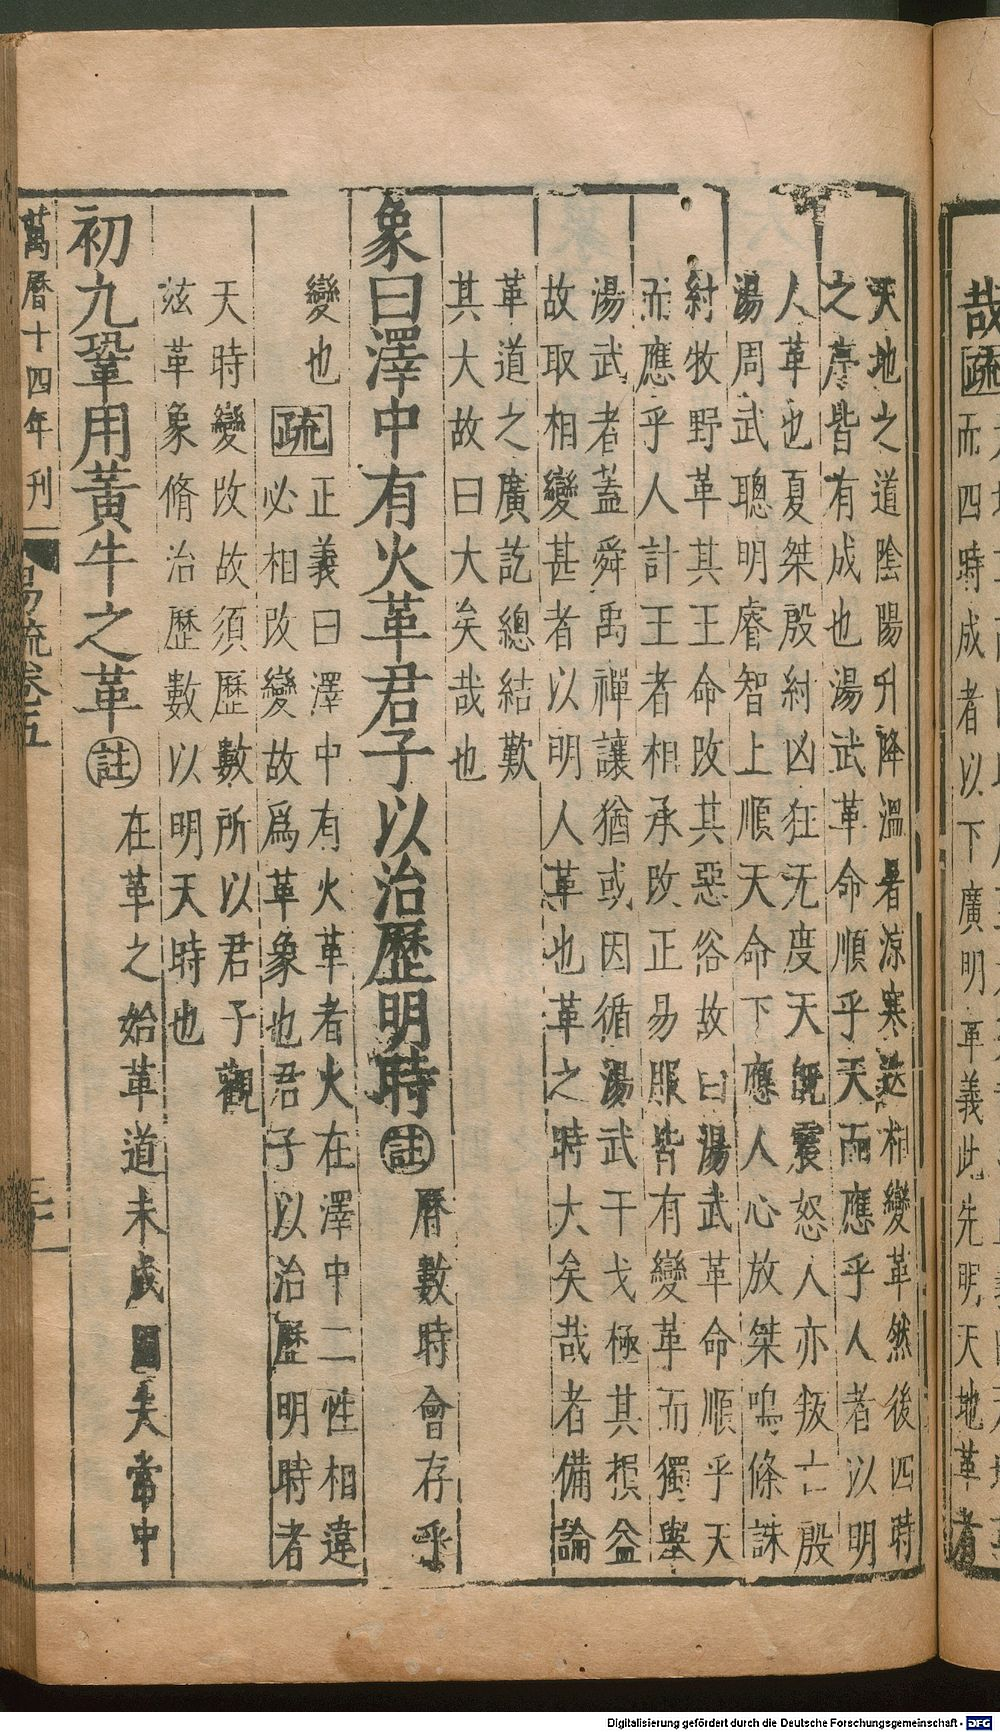 哉疏
而四時成者以下廣明革義此先明天地革者
天地之道陰陽升降溫暑涼寒迭相變革然後四時
之序皆有成也湯武革命順乎天而應乎人者以明
人革也夏桀殷紂凶狂无度天既震怒人亦叛亡殷
湯周武聰明睿智上順天命下應人心放桀鳴條誅
紂牧野革其王命改其惡俗故曰湯武革命順乎天
而應乎人計王者相承改正易服皆有變革而獨舉
湯武者蓋舜禹禪讓猶或因循湯武干戈極其損益
故取相變甚者以明人革也革之時大矣哉者備論
革道之廣訖總結歎
其大故曰大矣哉也
象曰澤中有火革君子以治歷明時註
曆數時會存乎
變也
疏
正義曰澤中有火革者火在澤中二性相違
必相改變故爲革象也君子以治歷明時者
天時變改故須歷數所以君子觀
茲革象脩治歷數以明天時也
初九鞏用黃牛之革註
在革之始革道未成
夫常中
萬曆十四年刊
易疏卷五
Digitalisierung gefördert durch die Deutsche Forschungsgemeinschaft - DFG